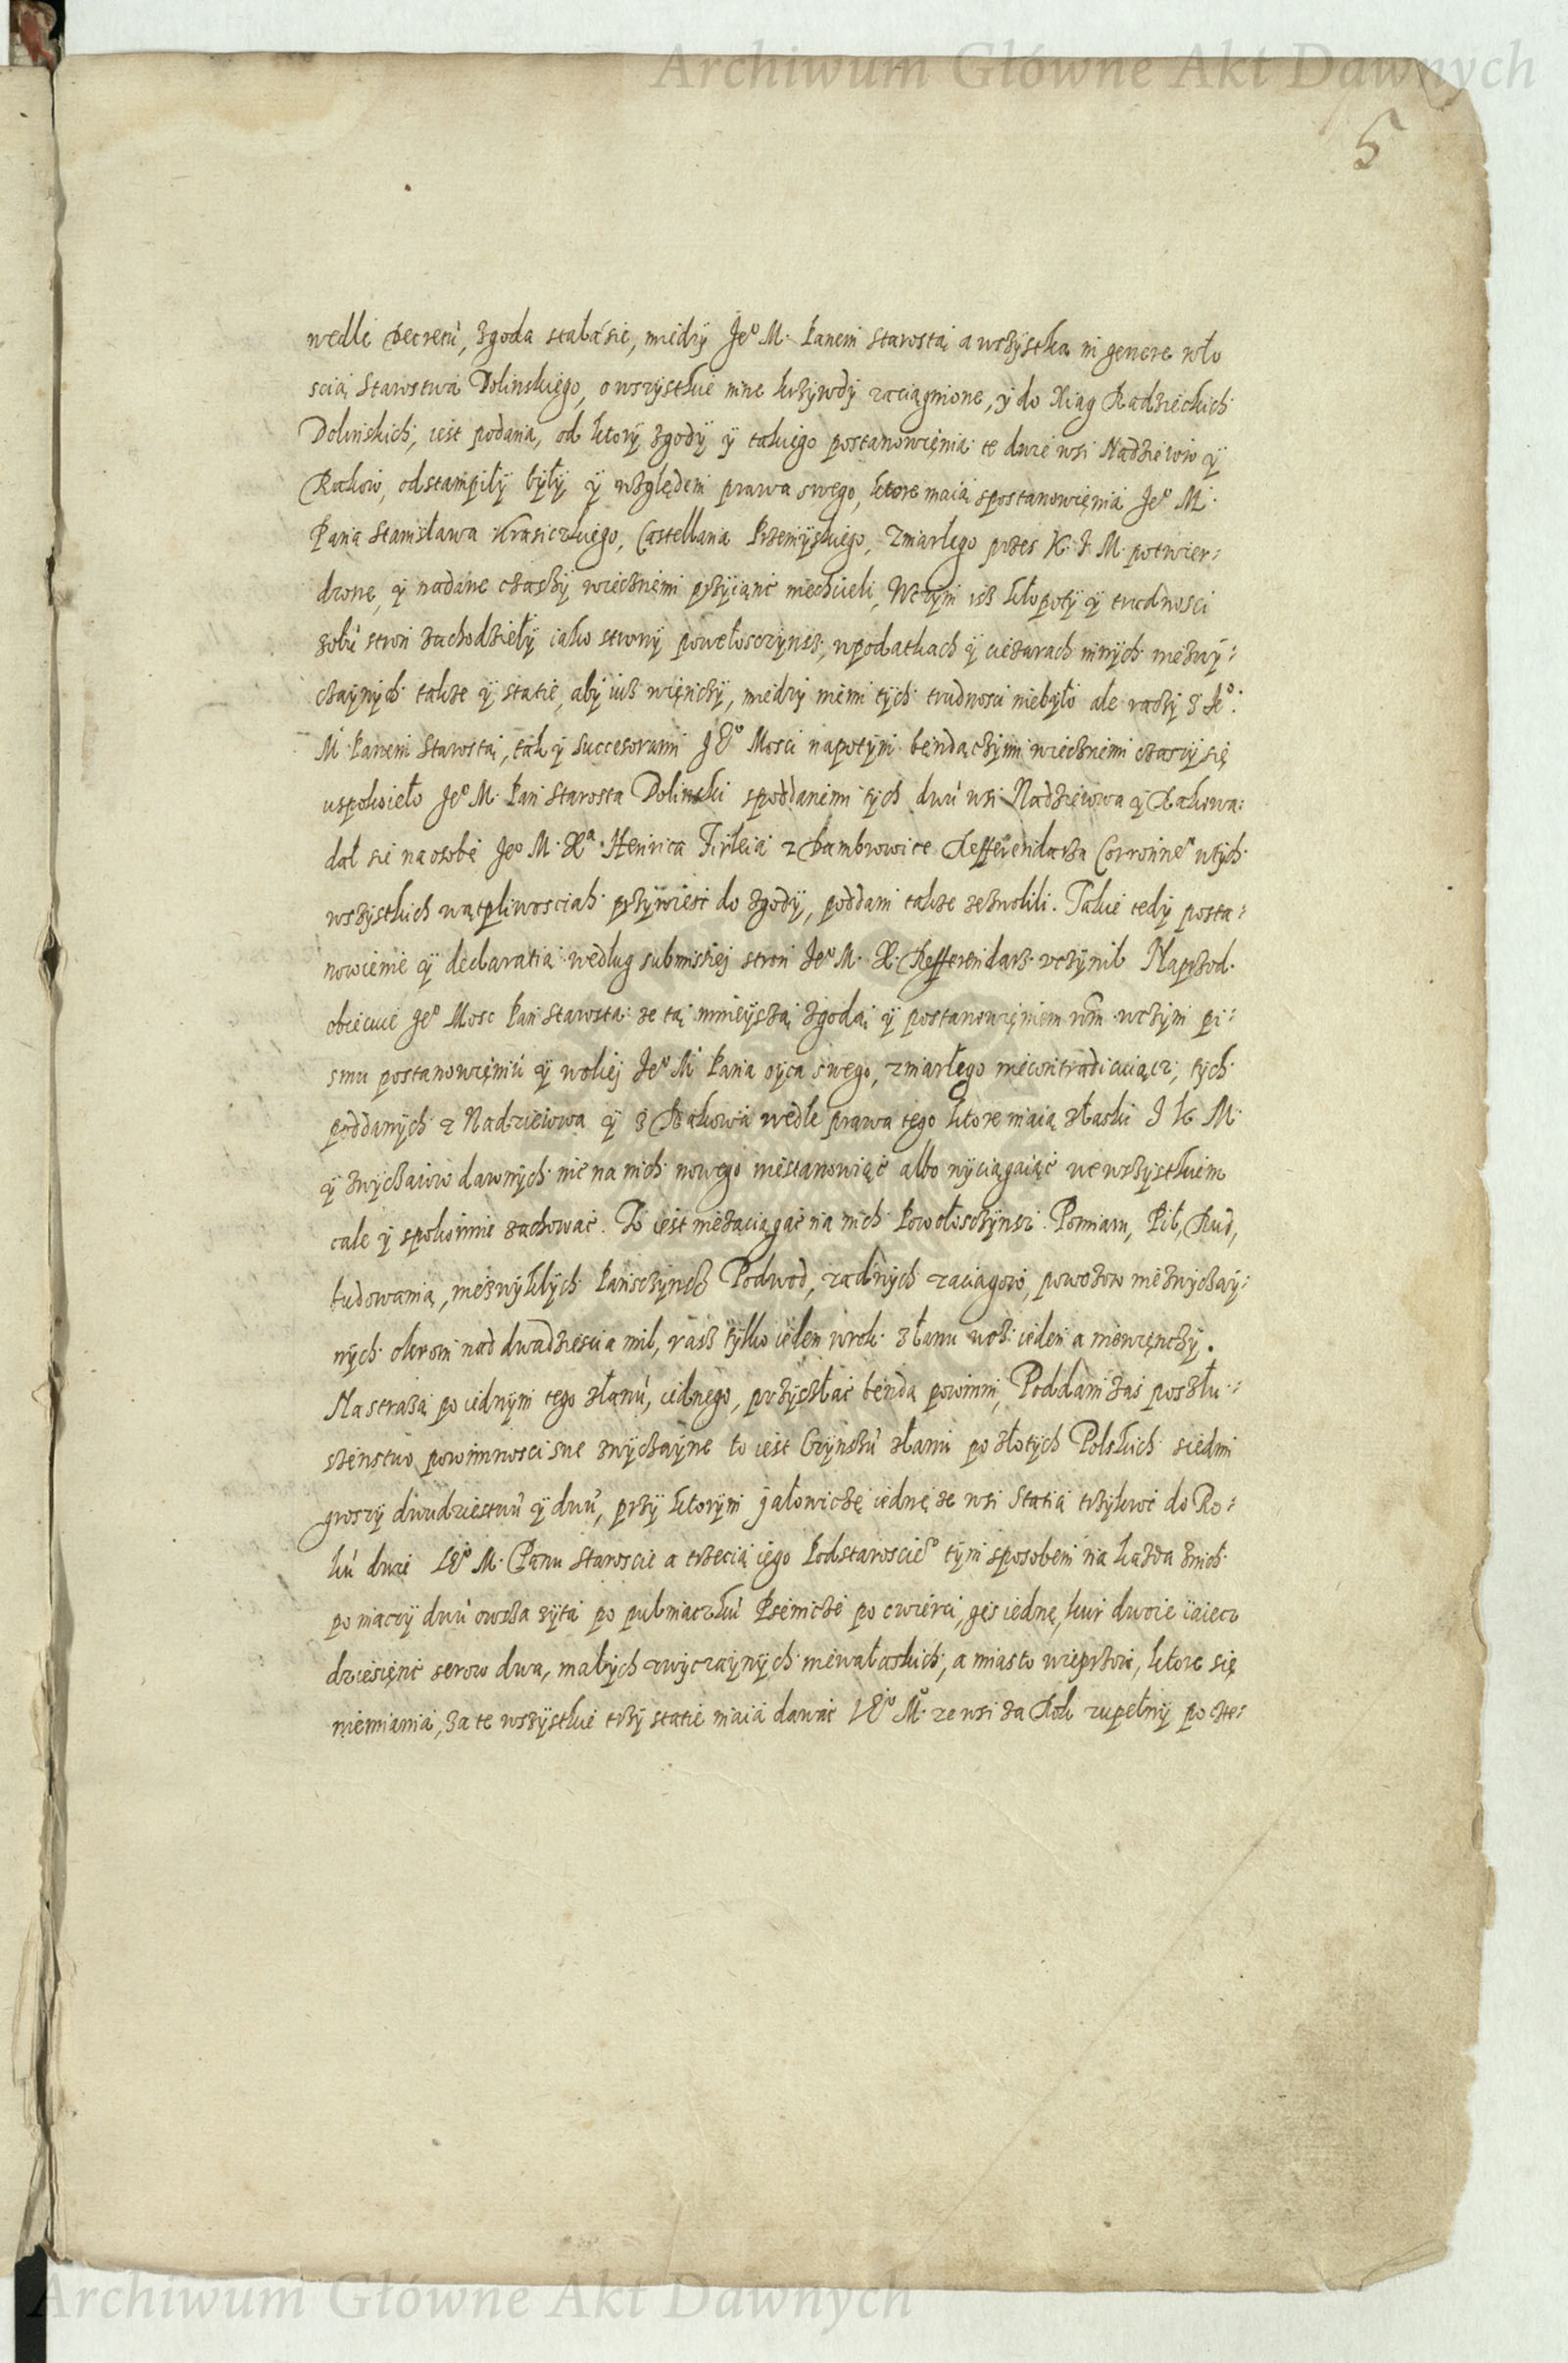 Archiwum Główne Akt Dawnych
5
wedle Decretu, zgoda stała sie, miedzy Jeo M. Panem Starostą a wszystką in genere wło
scią Starostwa Dolinskiego, o wszystkie inne krzywdy zaciągnione, y do Xiąg Radzieckich
Dolinskich, iest podana, od ktory zgody y takiego postanowięnia te dwie wsi Nadzieiow y
Rakow, odstampiły były y względem prawa swego, ktore maią spostanowięnia Jeo M.
Pana Stanisława Krasiczkiego, Castellana Przemyskiego, Zmarłego przes K. J. M. potwier:
dzone, y nadane czassy wiecznemi przyiąnc niechcieli, Wczym isz kłopoty y trudnosci
zobu stron zachodzieły iako strony powołosczyny, wpodatkach y ciezarach innych niezwy:
czaynych takze y statie, aby iusz więnczy, miedzy niemi tych trudnosci niebyło ale raczy z Jeo:
M Panem Starostą, tak y Successorami JEo Mosci napotym bendączymi wiecznemi czasy się
uspokoieło Jeo M. Pan Starosta Dolinski spoddanemi tych dwu wsi Nadzięiowa y Rakowa:
dał sie na osobę Jeo M. Xa. Henrica Firleia z Dambrowice Refferendarza Corronneo wtych
wszystkich wątpliwosciah przywiesc do zgody, poddani takze zezwolili. Takie tedy posta:
nowienie y declaratia według submissiej stron Jeo M. X. Refferendarz vczynil Naprzod.
obiecuie Jeo Mosc Pan Starosta ze tą ninieyszą zgodą y postanowięniem wczym pi:
smu postanowięniu y woliej Jeo M Pana oyca swego, zmarłego niecontradicuiącz, tych
poddanych z Nadzieiowa y z Rakowa wedle prawa tego ktore maią złaski J K M
y zwyczaiow dawnych nic na nich nowego niestanowiąc albo wyciągaiąc we wszystkiem
cale y spokoinie zachowac. To iest niezaciągac na nich Powołosczynsz. Pomiaru, Pił, Rud,
budowania, niezwykłych Pansczyn Podwod, zadnych zaciagow, powozow niezwyczay:
nych okrom nad dwadziescia mil, rasz tylko ieden wrok z łanu woz ieden a niewięnczy.
Na strazą po iednym tego złanu, iednego, przysłac bendą powinni, Poddani zas poszłu:
szenstwo powinnosci swe zwyczayne to iest Czynszu złanu po złotych Polskich siedmi
groszy dwudziestu y dwu, przy ktorym jałowiczę iednę ze wsi Statią trzykroc do Ro:
ku dwie JEo M. Panu Staroscie a trzecią iego Podstaroscieo tym sposobem na kazda znich
po maczy dwu owsza zyta po pulmaczku Psenicze po cwierci, gęs iednę, kur dwoie iaiecz
dziesięnc serow dwa, małych zwyczaynych niewałaskich, a miasto wieprzow, ktore się
niemiania, za te wszystkie trzy statie maią dawac JEo M. ze wsi za Rok zupełny po cze:
Archiwum Główne Akt Dawnych